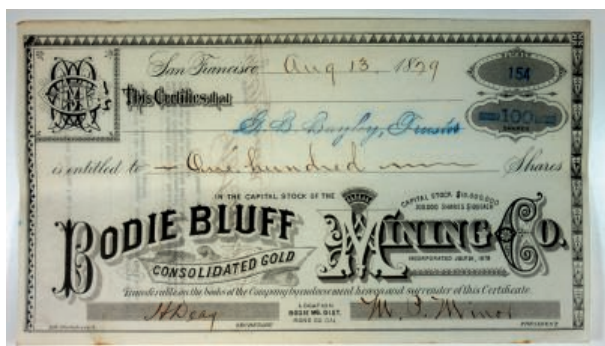 San Francisco, Aug 13 1879
NUMBER
154
This Certifies that
100
SHARES
G. B. Bayley, Trustee
is entitled to One hundred Shares
IN THE CAPITAL STOCK OF THE
CAPITAL STOCK $10,000,000
100,000 SHARES $100 EACH
BODIE BLUFF
CONSOLIDATED GOLD
MINING CO.
INCORPORATED
1878
Transferable on the books of the Company by endorsement hereon and surrender of this Certificate.
LOCATION
BODIE MG. DIST.
MONO CO. CAL.
SECRETARY
PRESIDENT